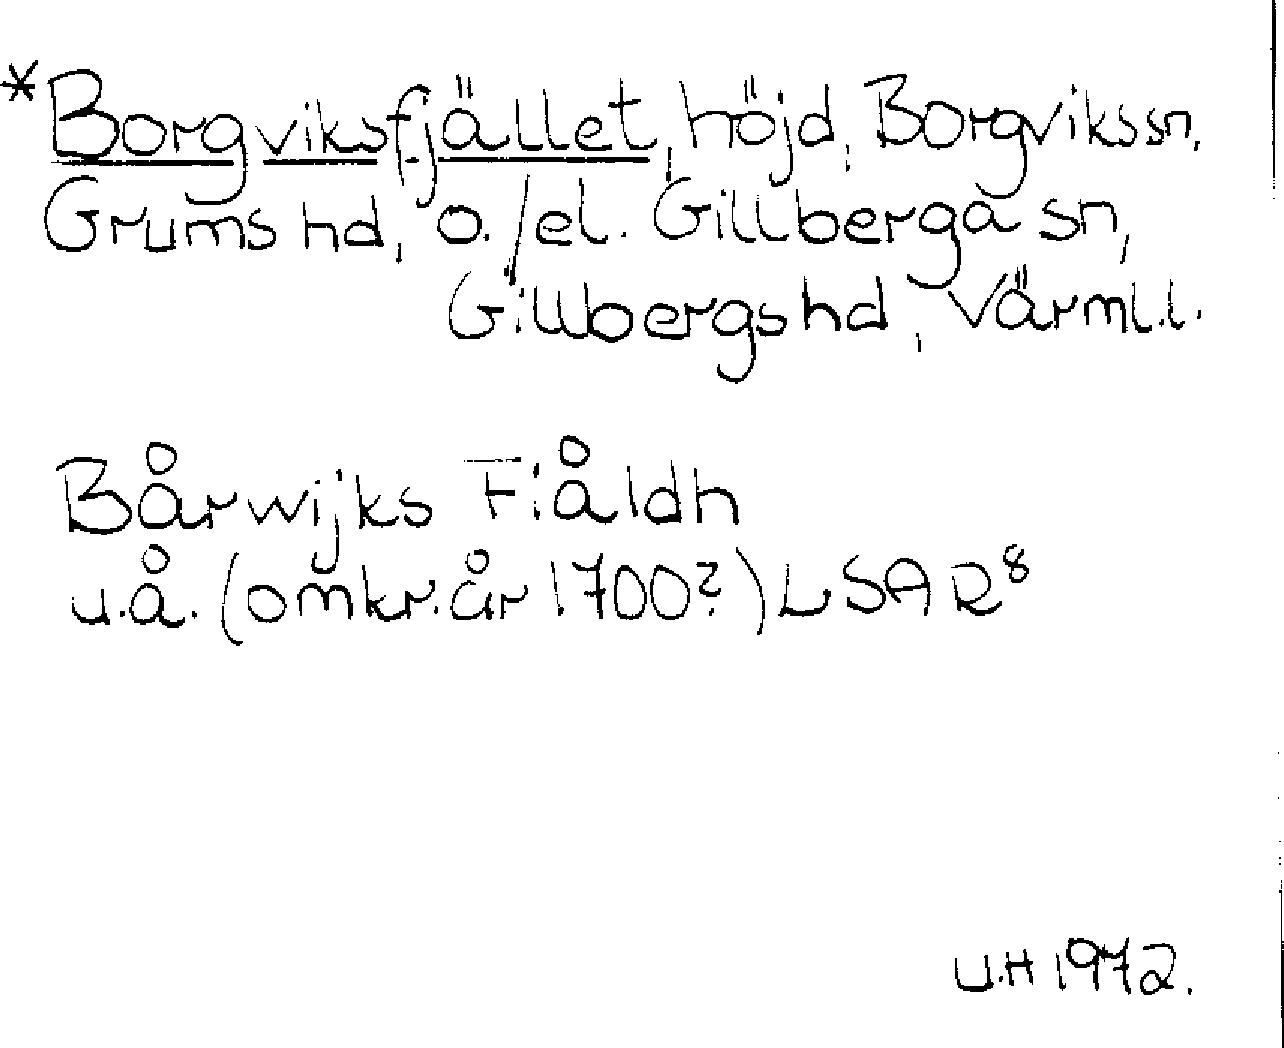 *Borgviksfjället, höjd, Borgviks sn,
Grums hd, o./el. Gillberga sn,
Gillbergs hd, Värml.l.
Bårwijks Fiåldh
u.å. (omkr. år 1700?) LSA R⁸
U.H 1972.